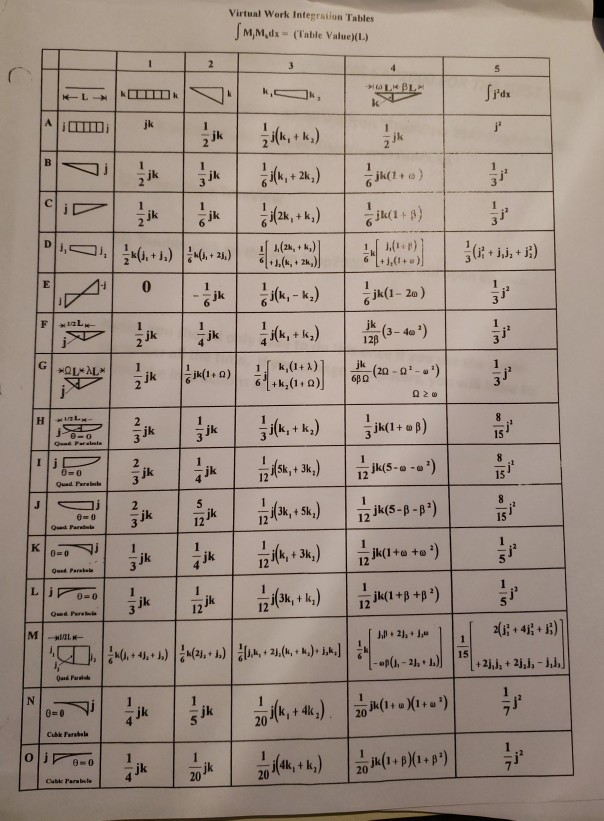 Virtual Work Integration Tables
∫ MⱼMₖdx = (Table Value)(L)
1 2 3 4 5
L k k k k₁ k₂ ωL βL k ∫j²dx
A j j jk 1/2 jk 1/2 j(k₁ + k₂) 1/2 jk j²
B j 1/2 jk 1/3 jk 1/6 j(k₁ + 2k₂) 1/6 jk(1 + ω) 1/3 j²
C j 1/2 jk 1/6 jk 1/6 j(2k₁ + k₂) 1/6 jk(1 + β) 1/3 j²
D j₁ j₂ 1/2 k(j₁ + j₂) 1/6 k(j₁ + 2j₂) 1/6 [j₁(2k₁ + k₂) + j₂(k₁ + 2k₂)] 1/6 k[j₁(1 + β) + j₂(1 + ω)] 1/3 (j₁² + j₁j₂ + j₂²)
E j -j 0 -1/6 jk 1/6 j(k₁ - k₂) 1/6 jk(1 - 2ω) 1/3 j²
F 1/2L j 1/2 jk 1/4 jk 1/4 j(k₁ + k₂) jk/12β (3 - 4ω²) 1/3 j²
G ΩL λL j 1/2 jk 1/6 jk(1 + Ω) 1/6 j[k₁(1 + λ) + k₂(1 + Ω)] jk/6βΩ (2Ω - Ω² - ω²) Ω ≥ ω 1/3 j²
H 1/2 L j θ=0 Quad. Parabola 2/3 jk 1/3 jk 1/3 j(k₁ + k₂) 1/3 jk(1 + ωβ) 8/15 j²
I j θ=0 Quad. Parabola 2/3 jk 1/4 jk 1/12 j(5k₁ + 3k₂) 1/12 jk(5 - ω - ω²) 8/15 j²
J j θ=0 Quad. Parabola 2/3 jk 5/12 jk 1/12 j(3k₁ + 5k₂) 1/12 jk(5 - β - β²) 8/15 j²
K θ=0 j Quad. Parabola 1/3 jk 1/4 jk 1/12 j(k₁ + 3k₂) 1/12 jk(1 + ω + ω²) 1/5 j²
L j θ=0 Quad. Parabola 1/3 jk 1/12 jk 1/12 j(3k₁ + k₂) 1/12 jk(1 + β + β²) 1/5 j²
M 1/2L Quad. Parabola
N θ=0 j Cubic Parabola 1/4 jk 1/5 jk 1/20 j(k₁ + 4k₂) 1/20 jk(1 + ω)(1 + ω²) 1/7 j²
O j θ=0 Cubic Parabola 1/4 jk 1/20 jk 1/20 j(4k₁ + k₂) 1/20 jk(1 + β)(1 + β²) 1/7 j²